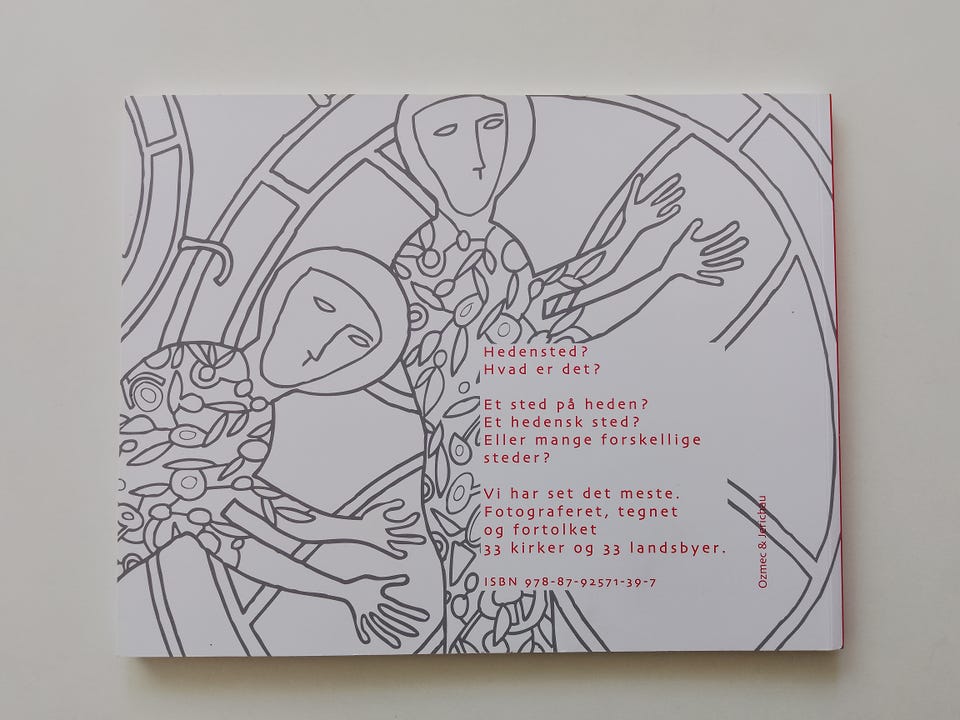 Hedensted?
Hvad er det?
Et sted på heden?
Et hedensk sted?
Eller mange forskellige
steder?
Vi har set det meste.
Fotograferet, tegnet
og fortolket
33 kirker og 33 landsbyer.
ISBN 978-87-92571-39-7
Ozmec & Jerichau